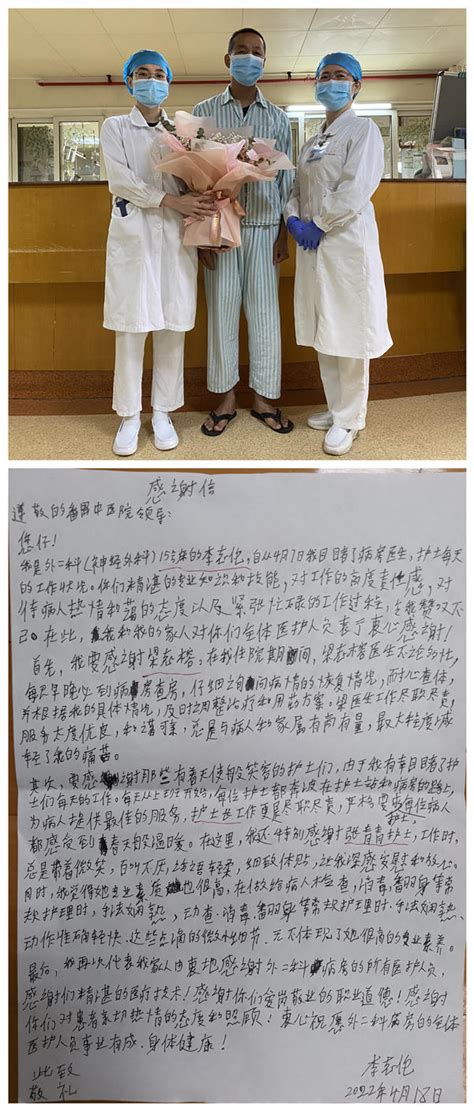 感谢信
尊敬的番禺中医院领导:
您好!
我是外二科(神经外科)15床的李志伦,自从4月7我目睹了病房医生,护士每天
的工作状况。你们精湛的专业知识和技能,对工作的高度责任感,对
待病人热情和蔼的态度以及紧张忙碌的工作过程,令我赞叹不
已。在此,我和我的家人对你们全体医护人员表示衷心感谢!
首先,我要感谢梁志榕。在我住院期间,梁志榕医生不论何时,
每天早晚必到病房查房,仔细询问病情的恢复情况,耐心查体,
并根据我的具体情况,及时调整治疗和用药方案。梁医生工作尽职尽责!
服务态度优良,和谐可亲,总是与病人和家属有商有量,最大程度减
轻了我的痛苦。
其次,要感谢那些有着天使般笑容的护士们,由于我有幸目睹了护
士们每天的工作。每天从上班开始,每位护士都奔波在护士站和病房的路上,
为病人提供最佳的服务,护士长工作更是尽职尽责,
护士,
都感受到春天般温暖。在这里,我还特别感谢张青青护士,工作时,
总是带着微笑,百叫不厌,话语轻柔,细致体贴,让我深感安慰和放心。
同时,我觉得她专业素质也很高,在做给病人检查,消毒,翻身等常
规护理时,手法娴熟,动查、消毒、翻身等常规护理时,手法娴熟,
动作准确轻快、这些点滴的微小细节,无不体现了她很高的专业素养。
最后,我再次代表我家人由衷地感谢外二科病房的所有医护人员,
感谢们精湛的医疗技术!感谢你们爱岗敬业的职业道德!感谢
你们对患者亲切热情的态度和照顾!衷心祝愿外二科病房的全体
医护人员事业有成、身体健康!
此致
敬礼
李志伦
2022年4月18日